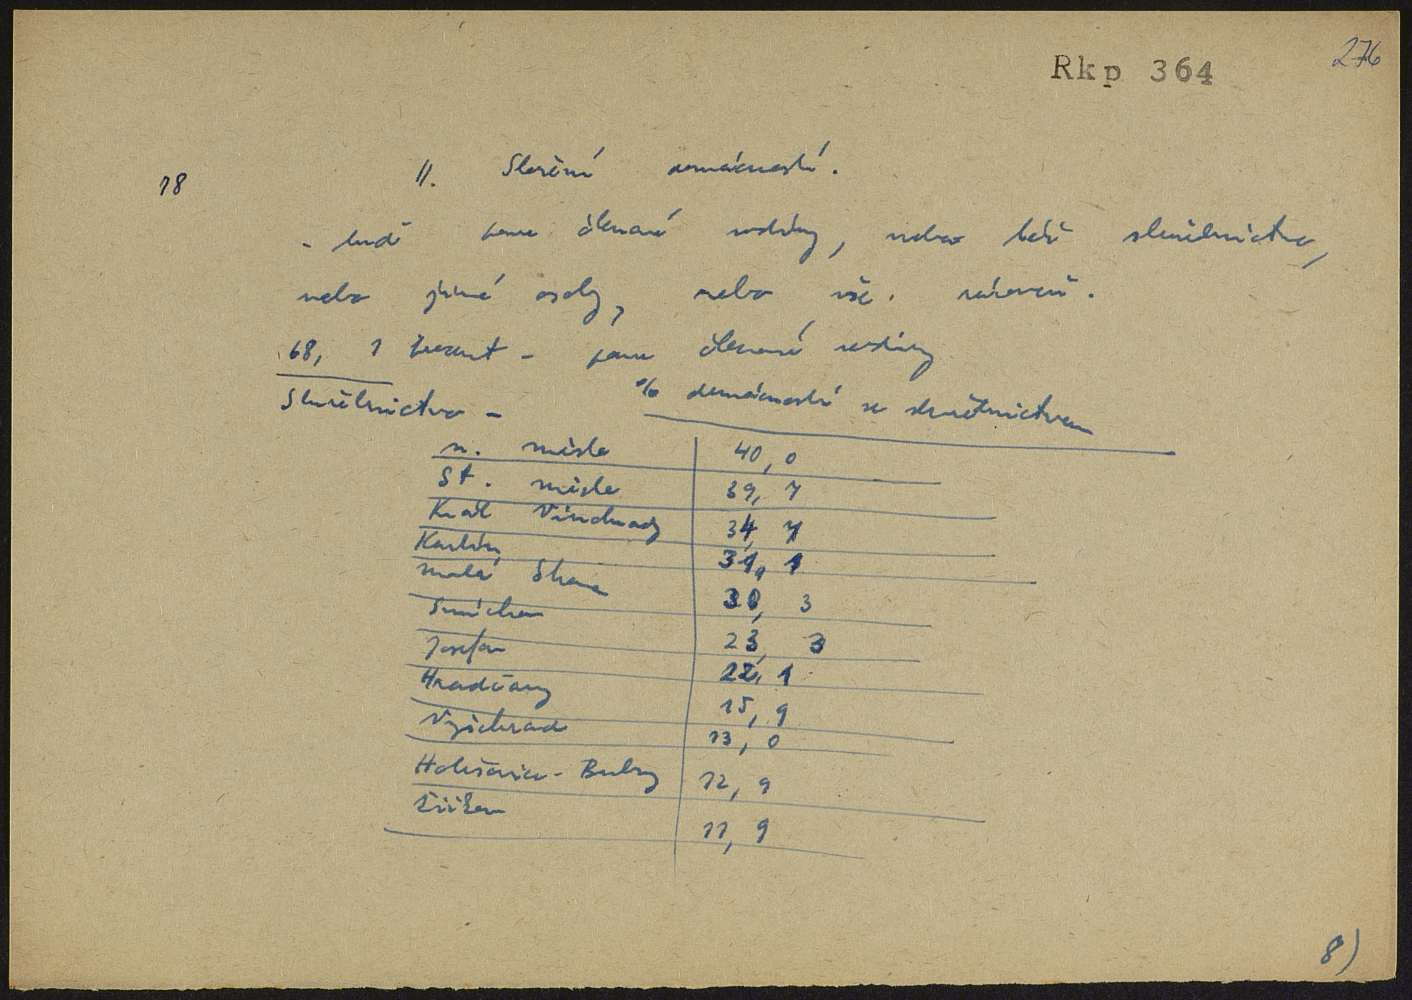 276
Rkp 364
18 II. Složení domácností.
- buď jsou členové rodiny, nebo též služebnictvo,
nebo jiné osoby, nebo vše. zároveň.
68, 1 procent - jsou členové rodiny
Služebnictvo - % domácností se služebnictvem
n. město 40,0
St. město 39,7
Král Vinohrady 34,7
Karlín 31,1
malá Strana 30,3
Smíchov 23,3
Josefov 22,1
Hradčany 15,9
Vyšehrad 13,0
Holešovice - Bubny 12,9
Žižkov 11,9
8)